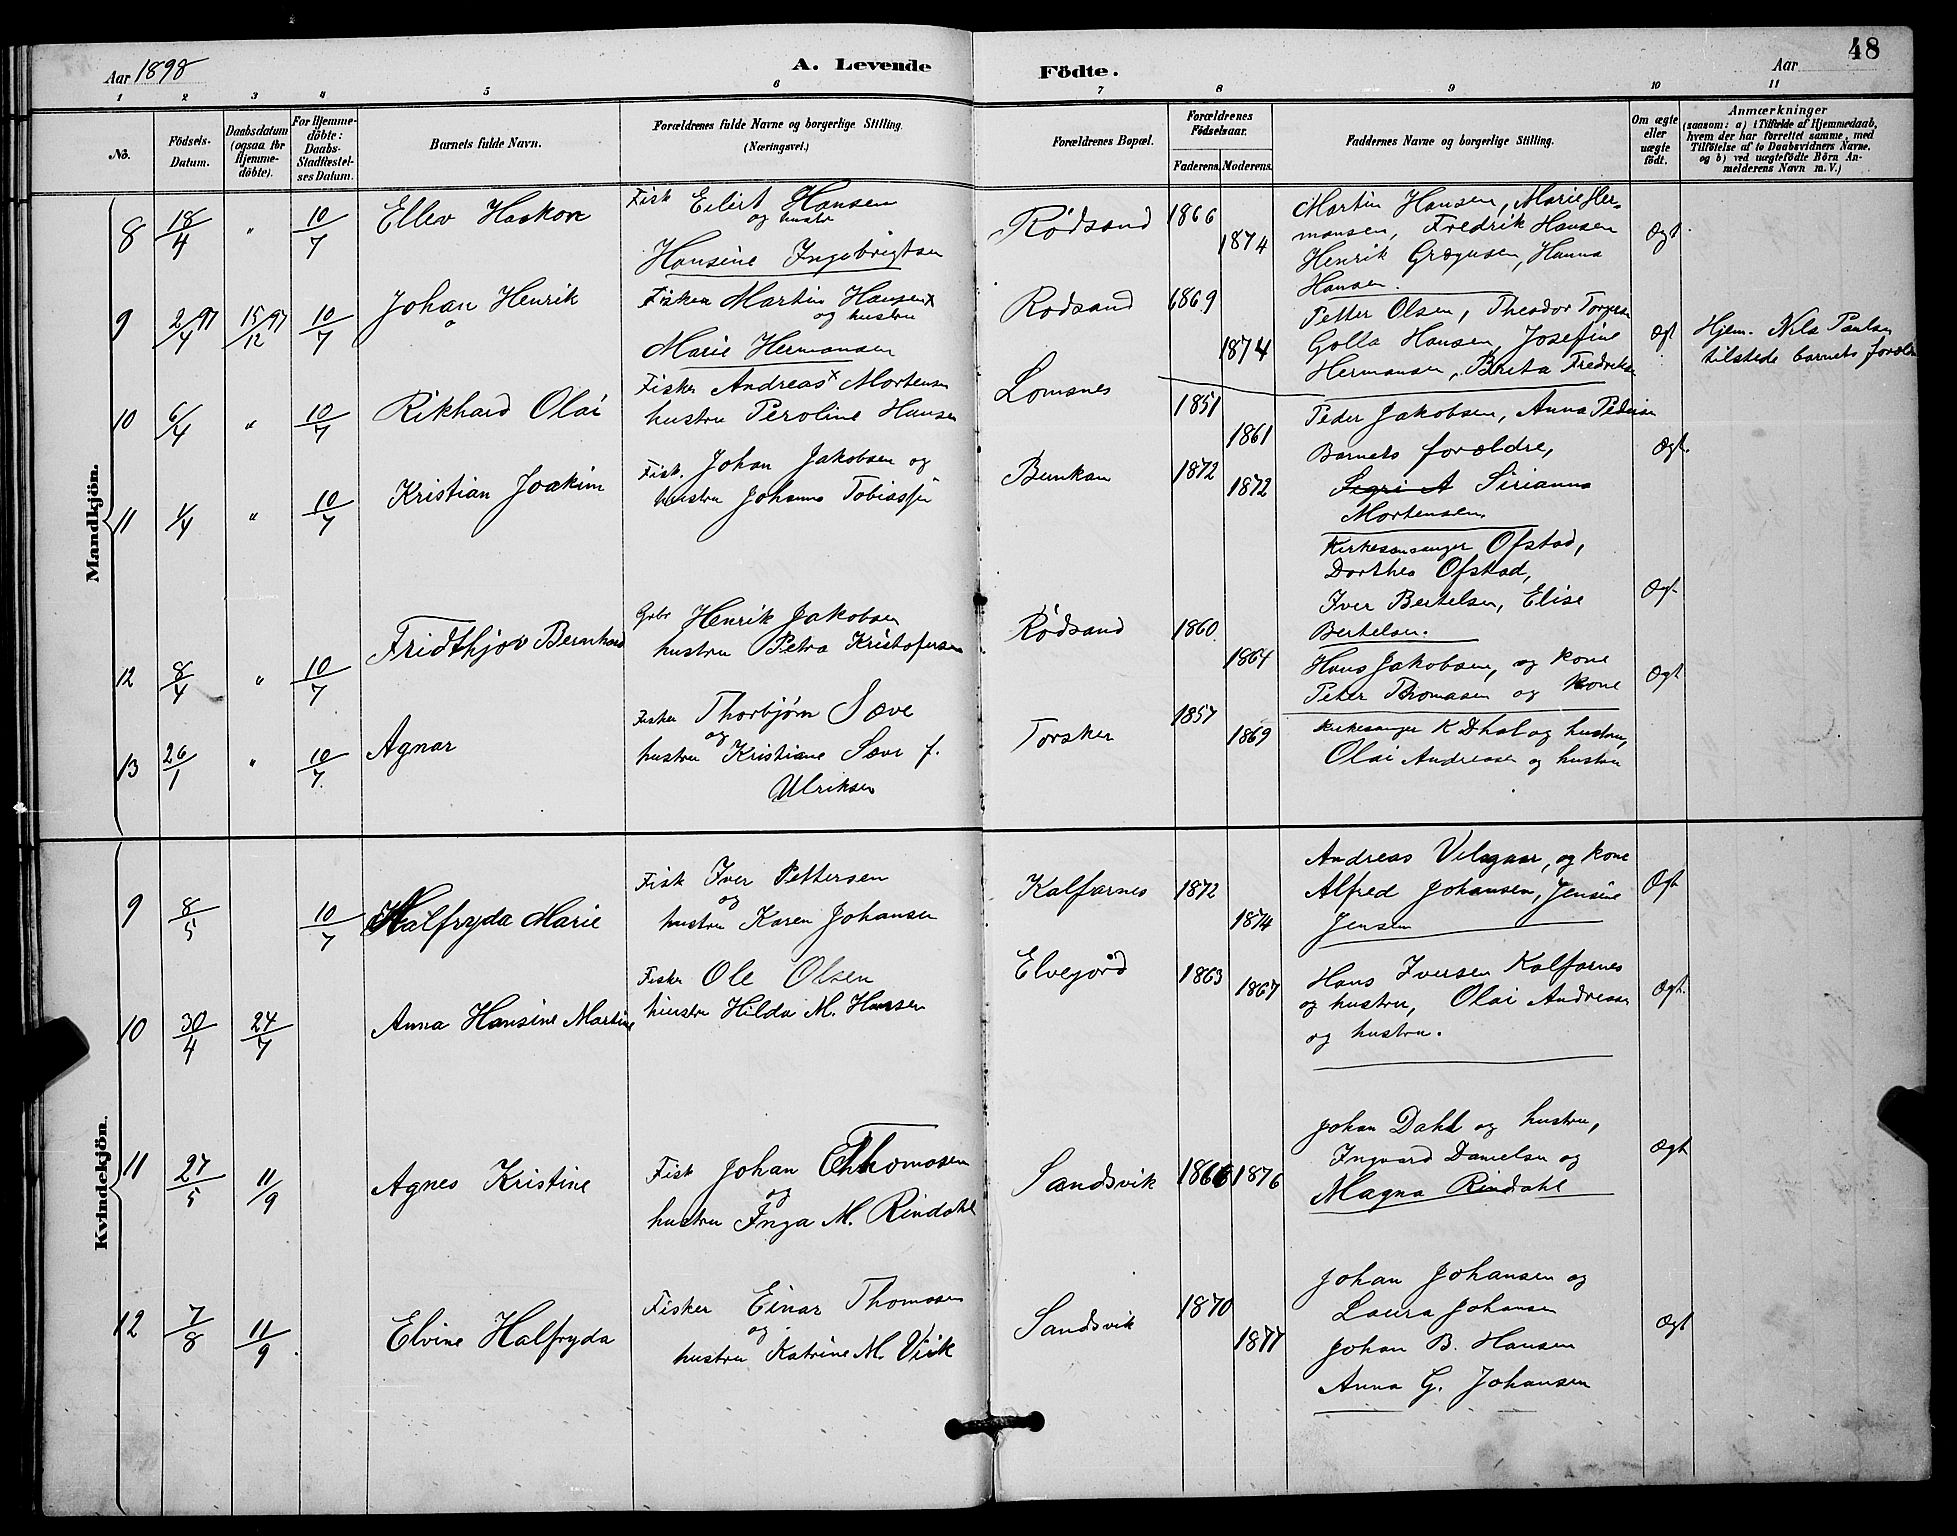 48
Aar 1898
A. Levende Födte.
Aar
1 2 3 4 5 6 7 8 9 10 11
No.
Födsels-Datum.
Daabsdatum (ogsaa for Hjemme-döbte).
For Hjemme-döbte: Daabs-Stadfæstel-ses Datum.
Barnets fulde Navn.
Forældrenes fulde Navne og borgerlige Stilling.
(Næringsvei.)
Forældrenes Bopæl.
Forældrenes Födselsaar.
Faderens. Moderens.
Faddernes Navne og borgerlige Stilling.
Om ægte eller uægte födt.
Anmærkninger
(saasom: a) i Tilfælde af Hjemmedaab,
hvem der har forrettet samme, med
Tilföielse af to Daabsvidners Navne,
og b) ved uægtefödte Börn An-
melderens Navn m. V.)
Mandkjön.
8 18/4 " 10/7 Ellev Haakon
Fisk Eilert Hansen
og hustr
Hansine Ingebrigtsen
Rødsand 1866 1874
Martin Hansen, Marie Her-
mansen, Fredrik Hansen
Henrik Grægusen, Hanna
Hansen.
Ægt
9 2/4 97 15/12 97 10/7 Johan Henrik
Fisker Martin Hansen x
og hustru
Marie Hermansen
Rødsand 1869 1874
Petter Olsen, Theodor Torgersen
Golla Hansen, Josefine
Hermansen, Berta Fredriksen
Ægt
Hjem. Nils Paulsen
tilstede barnets foreldr
10 6/4 " 10/7 Rikhard Olai
Fisker Andreas x Mortensen
hustru Peroline Hansen
Lomsnes 1851 1861
Peder Jakobsen, Anna Pedersen
Barnets forældre,
Sigri A Sirianna
Mortensen.
Ægt.
11 4/4 " 10/7 Kristian Joakim
Fisk. Johan Jakobsen og
hustru Johanna Tobiassen
Bunkan 1872 1872
Kirkesanger Ofstad,
Dorthea Ofstad,
Iver Bertelsen, Elise
Bertelsen.
Ægt
12 8/4 " 10/7 Fridthjov Bernhard
Gbr Henrik Jakobsen
hustru Petra Kristofersen
Rødsand 1860 1864
Hans Jakobsen, og kone
Peter Thomasen og kone
Ægt
13 26/1 " 10/7 Agnar
Fisker Thorbjørn Sæve
og
hustru Kristiane Sæve f.
Ulriksen
Torsken 1857 1869
Kirkesanger K Dhal og hustru,
Olai Andreasen og hustru
Kvindekjön.
9 8/5 10/7 Halfryda Marie
Fisk Iver Pettersen
og
hustru Karen Johansen
Kalfarnes 1872 1874
Andreas Vilsgaar, og kone
Alfred Johansen, Jensine
Jensen
Ægt
10 30/4 24/7 Anna Hansine Martine
Fisker Ole Olsen
hustru Hilda M. Hansen
Elvejord 1863 1867
Hans Iversen Kalfarnes
og hustru, Olai Andreasen
og hustru.
Ægt.
11 27/5 11/9 Agnes Kristine
Fisk Johan Thomasen
og
hustru Inga M. Rindahl
Sandsvik 1866 1876
Johan Dahl og hustru,
Ingvard Danielsen og
Magna Rindahl
Ægt
12 7/8 11/9 Elvine Halfryda
Fisker Einar Thomasen
og
hustru Katrine M. Vik
Sandsvik 1870 1877
Johan Johansen og
Laura Johansen
Johan B. Hansen
Anna G. Johansen
Ægt